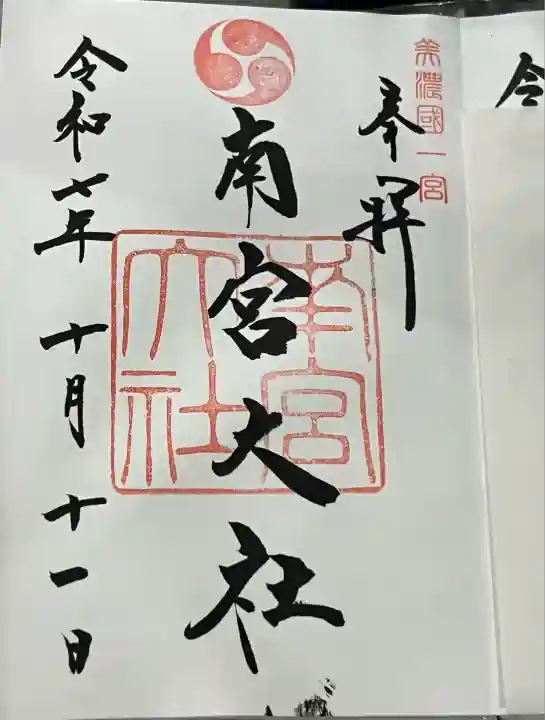 美濃國一宮
奉拝
南宮大社
南宮
大社
令和七年 十月 十一日
令